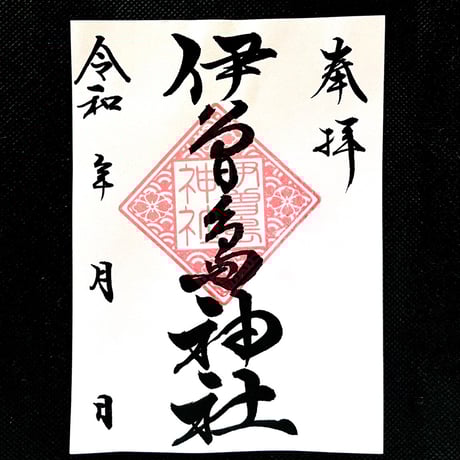 奉拝
伊曽島神社
伊曽島
神社
令和 年 月 日